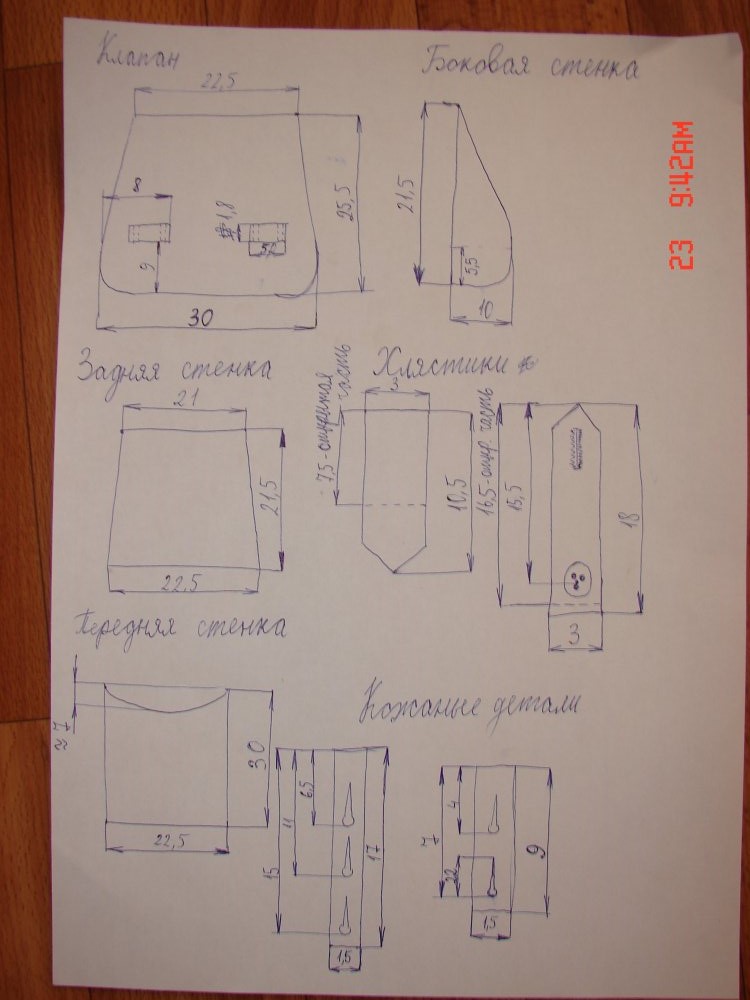 Клапан
22,5
8
1,8
5,2
25,5
9
30
Боковая стенка
21,5
5,5
10
23 9:42AM
Задняя стенка
21
21,5
22.5
Хлястики
3
7,5 - открытая
часть
10,5
16,5 - откр. часть
15,5
18
3
Передняя стенка
≈ 7
30
22,5
Кожаные детали
6,5
11
15
17
1,5
4
7
22
9
1,5